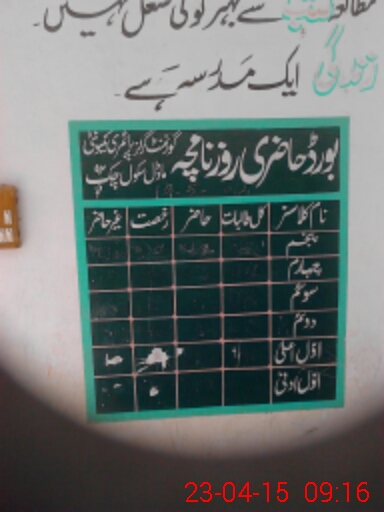 مطالعہ کتب سے بہتر کوئی شغل نہیں۔
زندگی ایک مدرسہ ہے
بورڈ حاضری روزنامچہ
گورنمنٹ گرلز پرائمری کمیونٹی
ماڈل سکول چک
نام کلاسز کل طالبات حاضر رخصت غیر حاضر
پنجم
چہارم
سوئم
دوئم
اول اعلیٰ
اول ادنیٰ
23-04-15 09:16